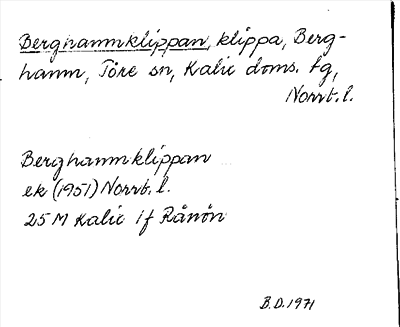 Berghamnklippan, klippa, Berg-
hamn, Töre sn, Kalix doms. tg,
Norrb. l.
Berghamnklippan
ek (1951) Norrb. l.
25 M Kalix if Rånön
B.D. 1971